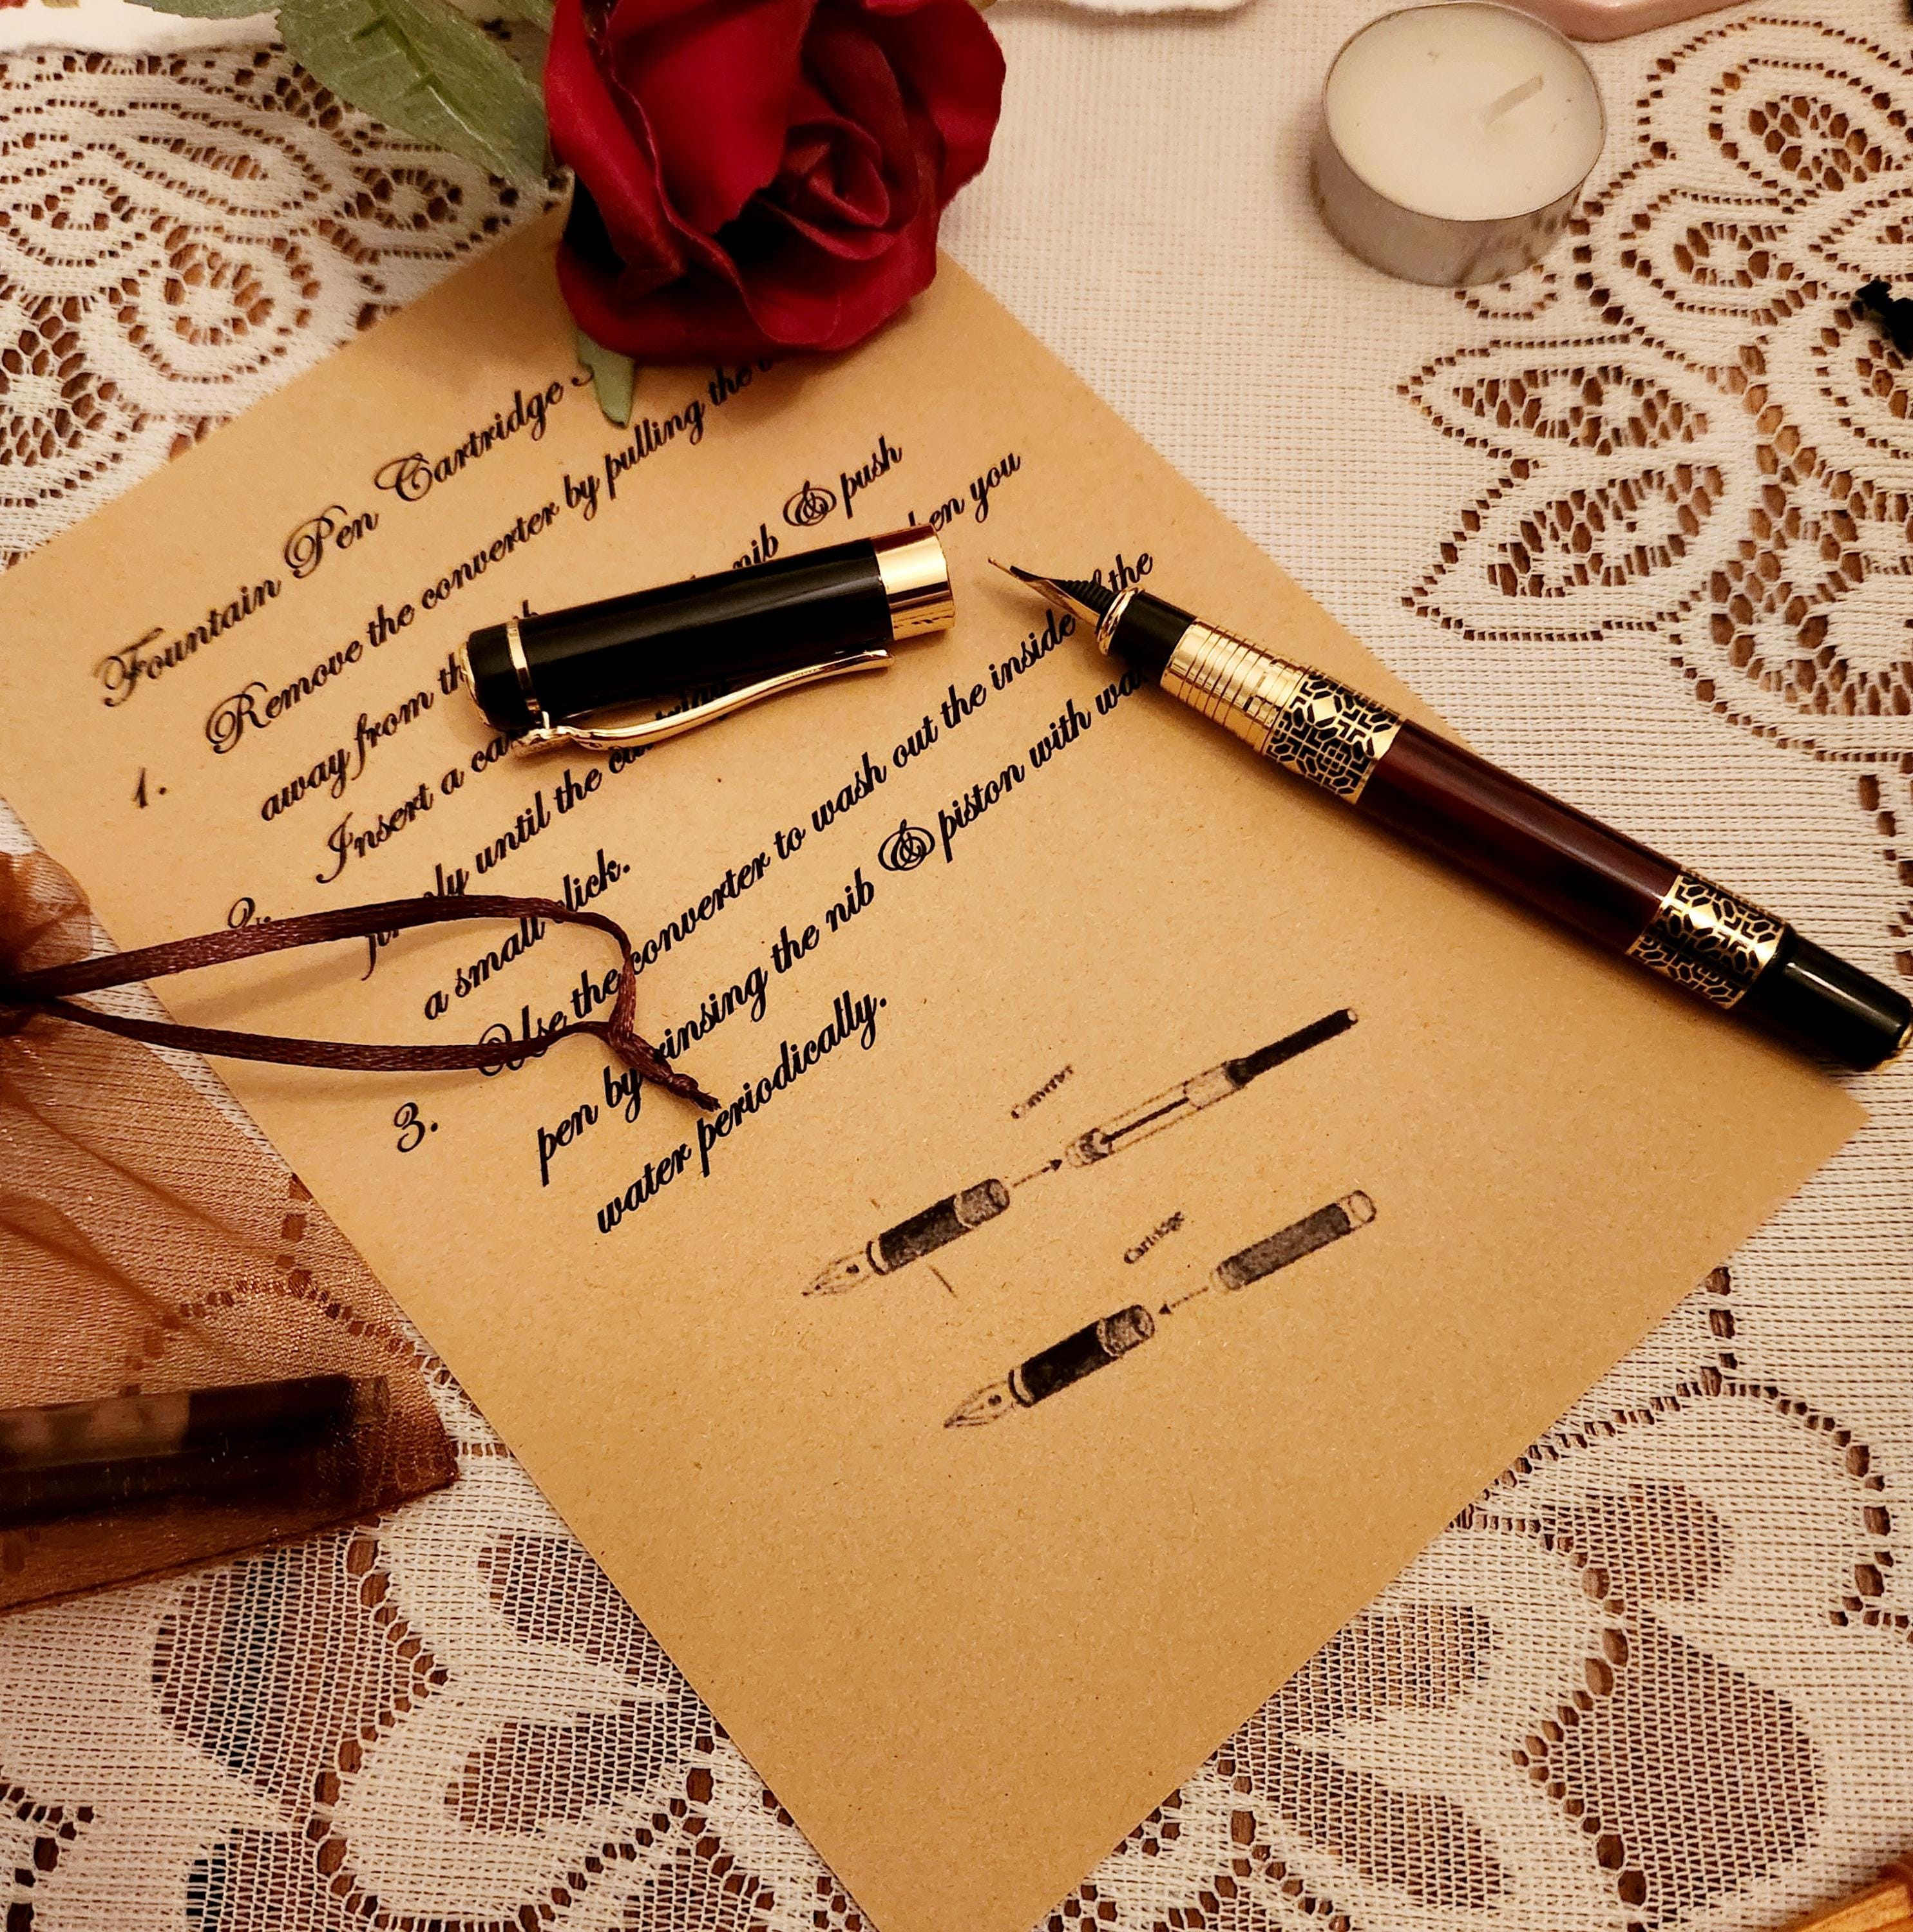 Fountain Pen Cartridge
1. Remove the converter by pulling the
away from the
2. Insert a nib & push
firmly until the when you
a small click.
3. Use the converter to wash out the inside of the
pen by rinsing the nib & piston with
water periodically.
Converter
Cartridge